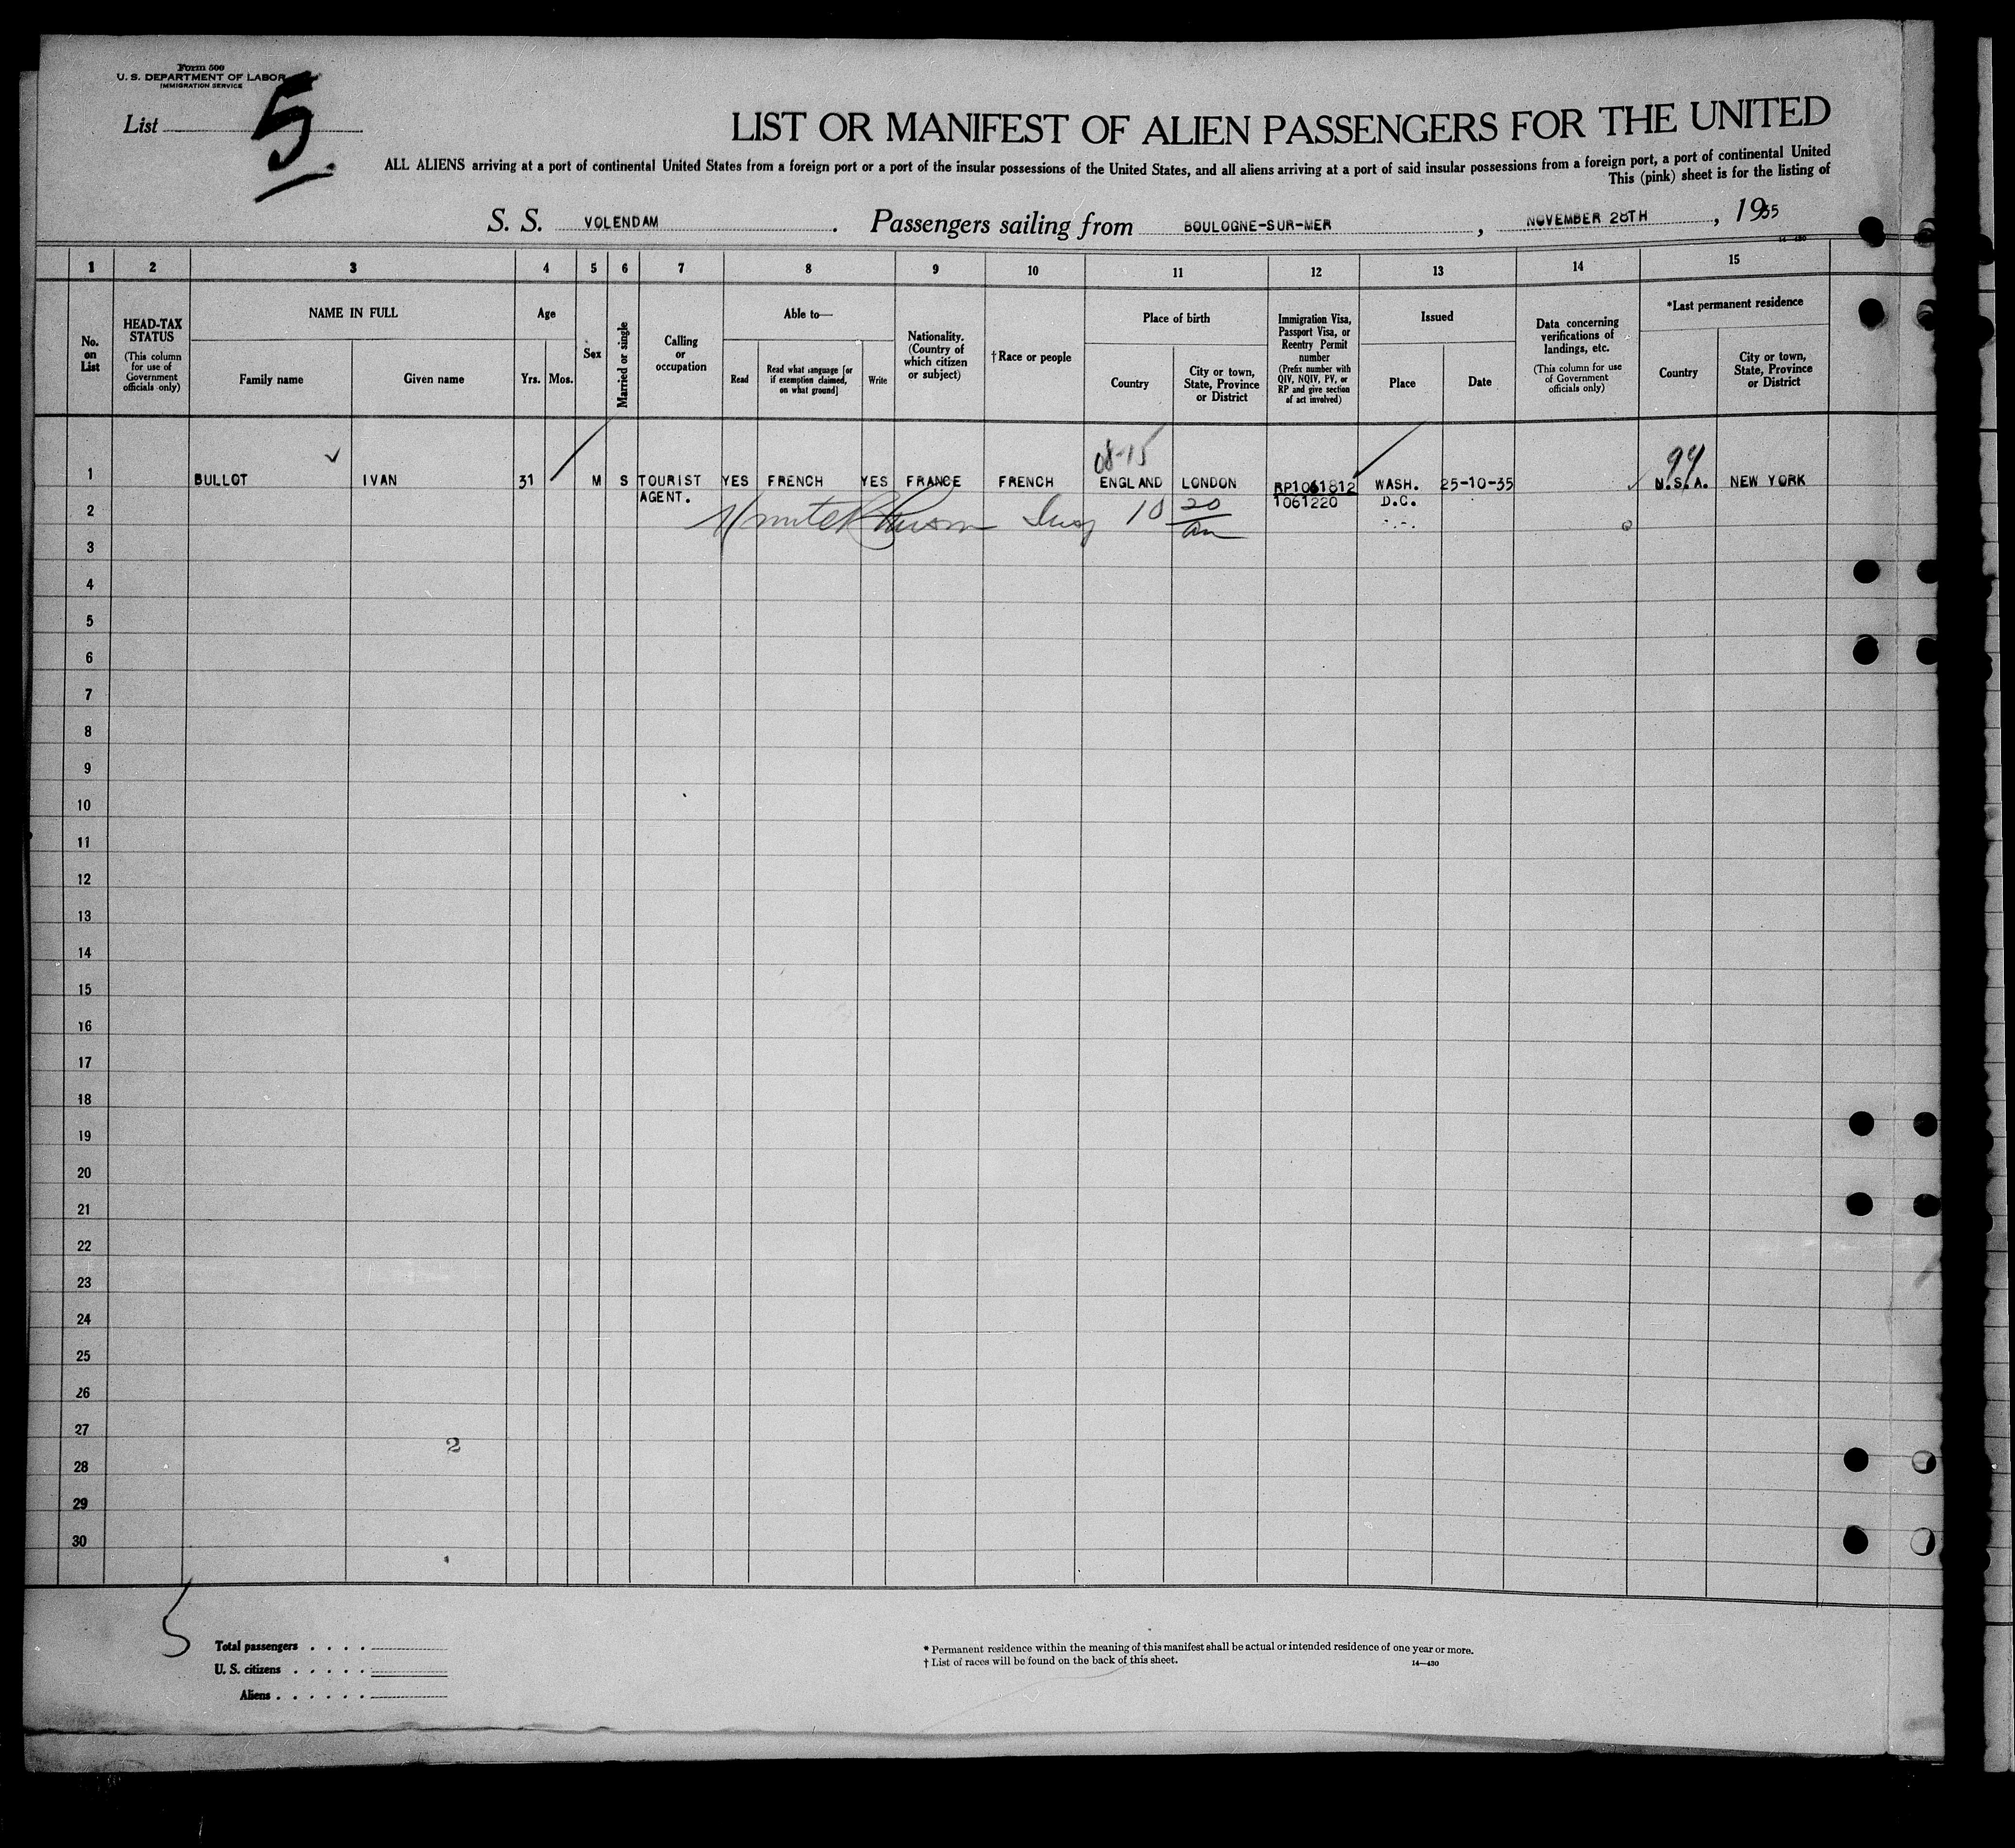 Form 500
U. S. DEPARTMENT OF LABOR
IMMIGRATION SERVICE
List 5
LIST OR MANIFEST OF ALIEN PASSENGERS FOR THE UNITED
ALL ALIENS arriving at a port of continental United States from a foreign port or a port of the insular possessions of the United States, and all aliens arriving at a port of said insular possessions from a foreign port, a port of continental United
This (pink) sheet is for the listing of
S. S. VOLENDAM. Passengers sailing from BOULOGNE-SUR-MER, NOVEMBER 28TH, 1935
14—430
1 2 3 4 5 6 7 8 9 10 11 12 13 14 15
No. on List
HEAD-TAX STATUS
(This column for use of Government officials only)
NAME IN FULL
Family name
Given name
Age
Yrs. Mos.
Sex
Married or single
Calling or occupation
Able to—
Read
Read what language [or if exemption claimed, on what ground]
Write
Nationality. (Country of which citizen or subject)
†Race or people
Place of birth
Country
City or town, State, Province or District
Immigration Visa, Passport Visa, or Reentry Permit number
(Prefix number with QIV, NQIV, PV, or RP and give section of act involved)
Issued
Place
Date
Data concerning verifications of landings, etc.
(This column for use of Government officials only)
*Last permanent residence
Country
City or town, State, Province or District
08-15
99
1 BULLOT IVAN 31 M S TOURIST YES FRENCH YES FRANCE FRENCH ENGLAND LONDON RP1061812 WASH. 25-10-35 U.S.A. NEW YORK
AGENT. 1061220 D.C.
2 10 20
-.-.
3
4
5
6
7
8
9
10
11
12
13
14
15
16
17
18
19
20
21
22
23
24
25
26
27
2
28
29
30
5
Total passengers . . . .
U. S. citizens . . . . .
Aliens . . . . . .
* Permanent residence within the meaning of this manifest shall be actual or intended residence of one year or more.
† List of races will be found on the back of this sheet.
14—430